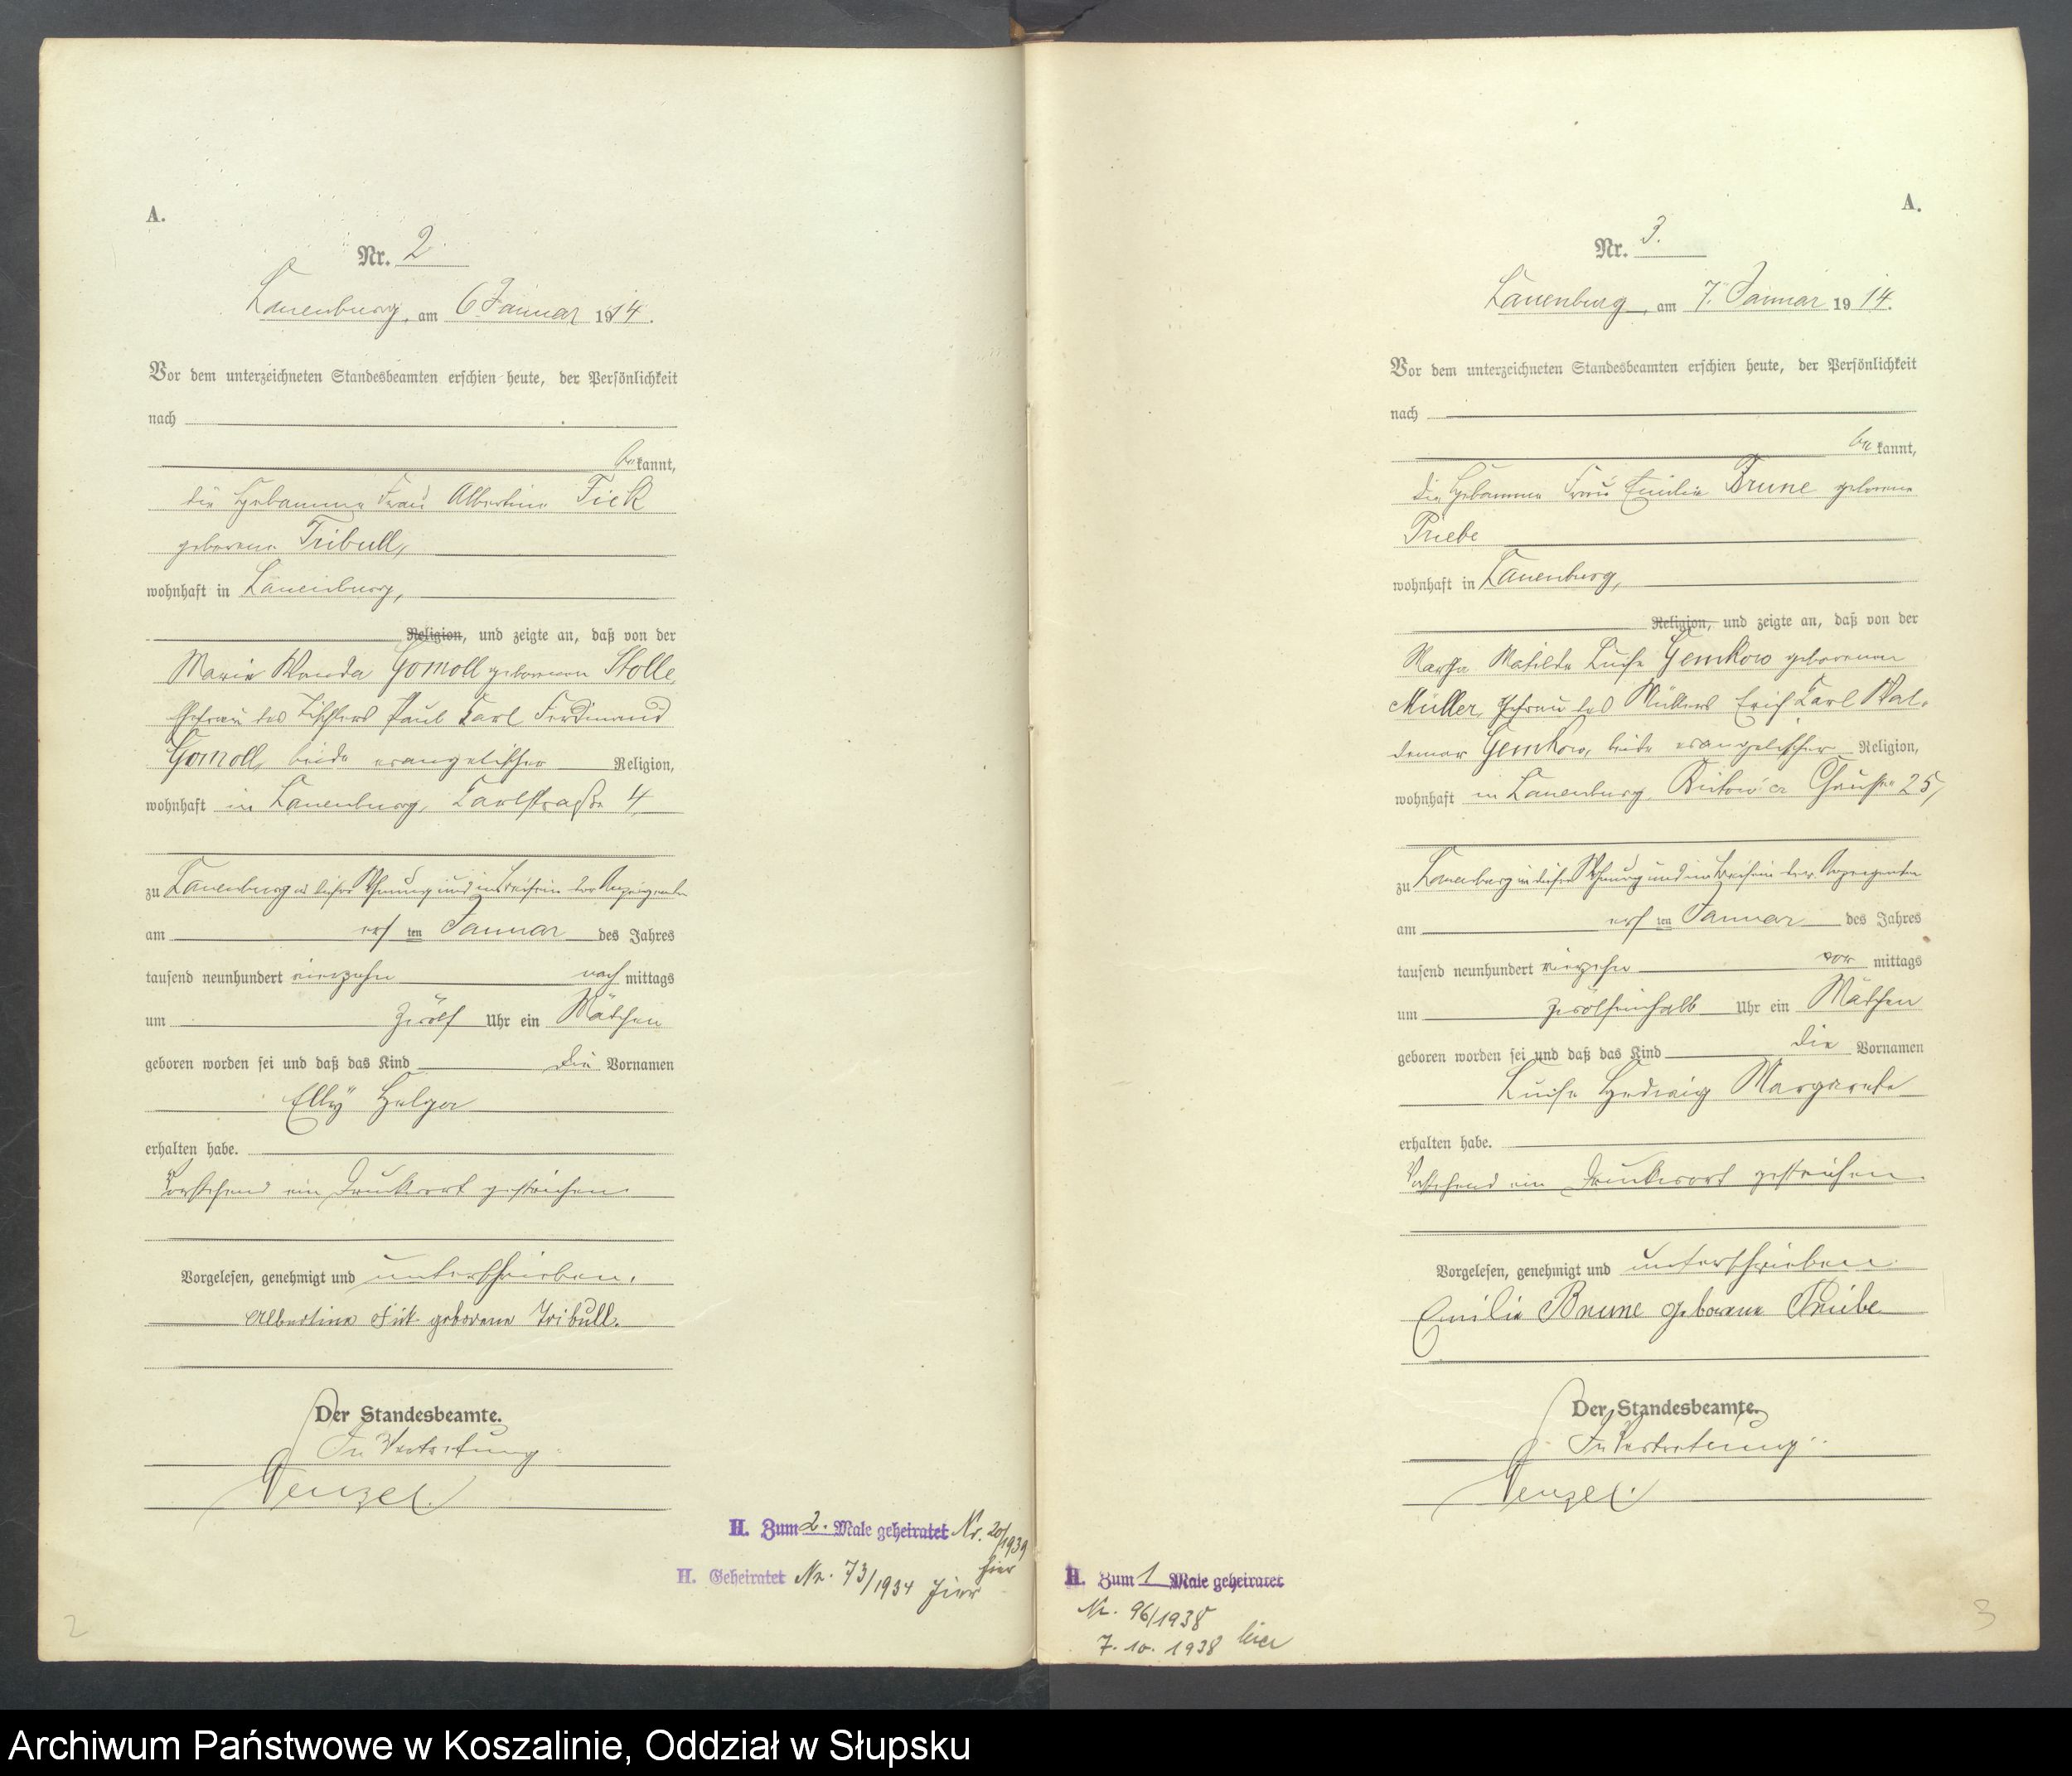 A.
Nr. 2
Lauenburg, am 6 Januar 1914.
Vor dem unterzeichneten Standesbeamten erschien heute, der Persönlichkeit
nach
bekannt,
die Hebamme Frau Albertine Fick
geborene Tribull,
wohnhaft in Lauenburg,
Religion, und zeigte an, daß von der
Marie Wanda Gomoll geborenen Stolle,
Ehefrau des Tischlers Paul Karl Ferdinand
Gomoll, beide evangelischer Religion,
wohnhaft in Lauenburg, Karlstraße 4
zu Lauenburg in dieser Wohnung und im Beisein der Anzeigenden
am ersten Januar des Jahres
tausend neunhundert vierzehn nachmittags
um zwölf Uhr ein Mädchen
geboren worden sei und daß das Kind die Vornamen
Elly Helga
erhalten habe.
Vorstehend ein Druckwort gestrichen.
Vorgelesen, genehmigt und unterschrieben.
Albertine Fick geborene Tribull.
Der Standesbeamte.
In Vertretung
Wenzel.
H. Zum 2. Male geheiratet Nr. 20/1939
hier
H. Geheiratet Nr. 73/1934 hier
2
A.
Nr. 3.
Lauenburg, am 7. Januar 1914.
Vor dem unterzeichneten Standesbeamten erschien heute, der Persönlichkeit
nach
bekannt,
die Hebamme Frau Emilie Brune geborene
Priebe
wohnhaft in Lauenburg,
Religion, und zeigte an, daß von der
Matilde Luise Gemkow geborenen
Müller, Ehefrau des Müllers Erich Karl Wal-
demar Gemkow, beide evangelischer Religion,
wohnhaft in Lauenburg, Bütow'er Chaussee 25,
zu Lauenburg in dieser Wohnung und im Beisein der Anzeigenden
am ersten Januar des Jahres
tausend neunhundert vierzehn vormittags
um zwölfeinhalb Uhr ein Mädchen
geboren worden sei und daß das Kind die Vornamen
Luise Hedwig Margarete
erhalten habe.
Vorstehend ein Druckwort gestrichen.
Vorgelesen, genehmigt und unterschrieben
Emilie Brune geborene Priebe
Der Standesbeamte.
In Vertretung
Wenzel.
H. Zum 1 Male geheiratet
Nr. 96/1938
7. 10. 1938 hier
3
Archiwum Państwowe w Koszalinie, Oddział w Słupsku